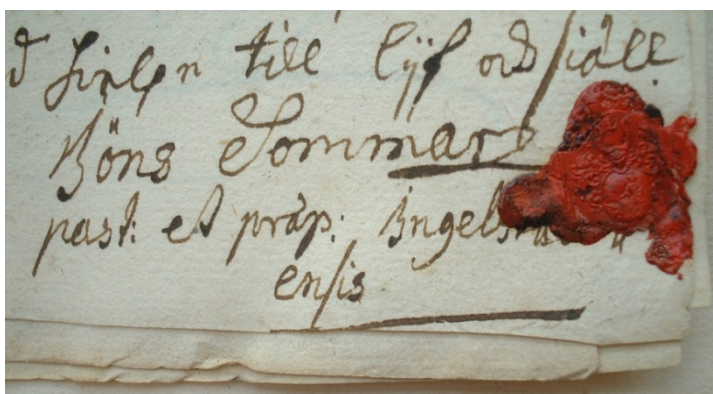 till lijf och siäll
Böns Sommar
past: et præp: Ingels
ensis